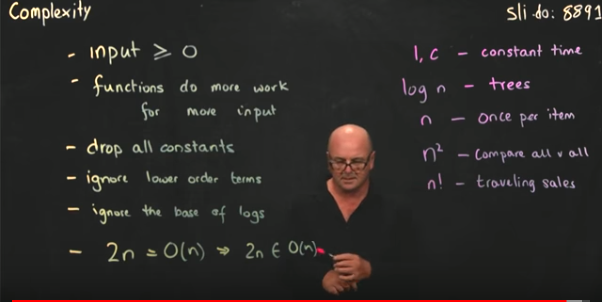 Complexity
sli.do: 8891
- input ⩾ 0
- functions do more work
for more input
- drop all constants
- ignore lower order terms
- ignore the base of logs
- 2n = O(n) ⇒ 2n ∈ O(n)
1, c - constant time
log n - trees
n - once per item
n² - compare all v all
n! - traveling sales